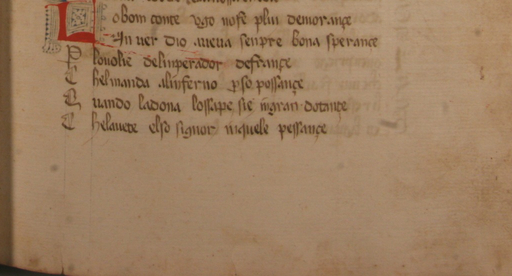 Lo bom conte ugo no fe plui demorançe
In ver dio aveva senpre bona sperançe
P lo volie del inperador de françe
C hel manda al inferno p so possançe
Q uando la dona lo ssape sie in gran dotançe
C hel avete el so signor in quele pessançe